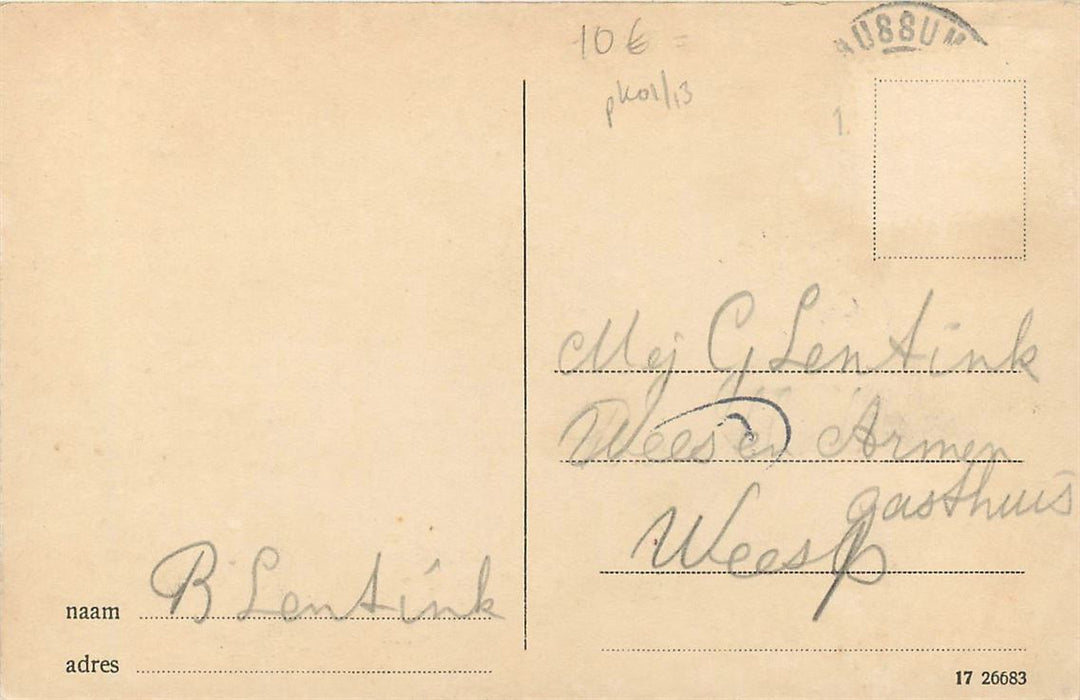 10 € =
pk01/13
BUSSUM
1.
Mej G Lentink
Wees en Armen
gasthuis
Weesp
naam B Lentink
adres
17 26683